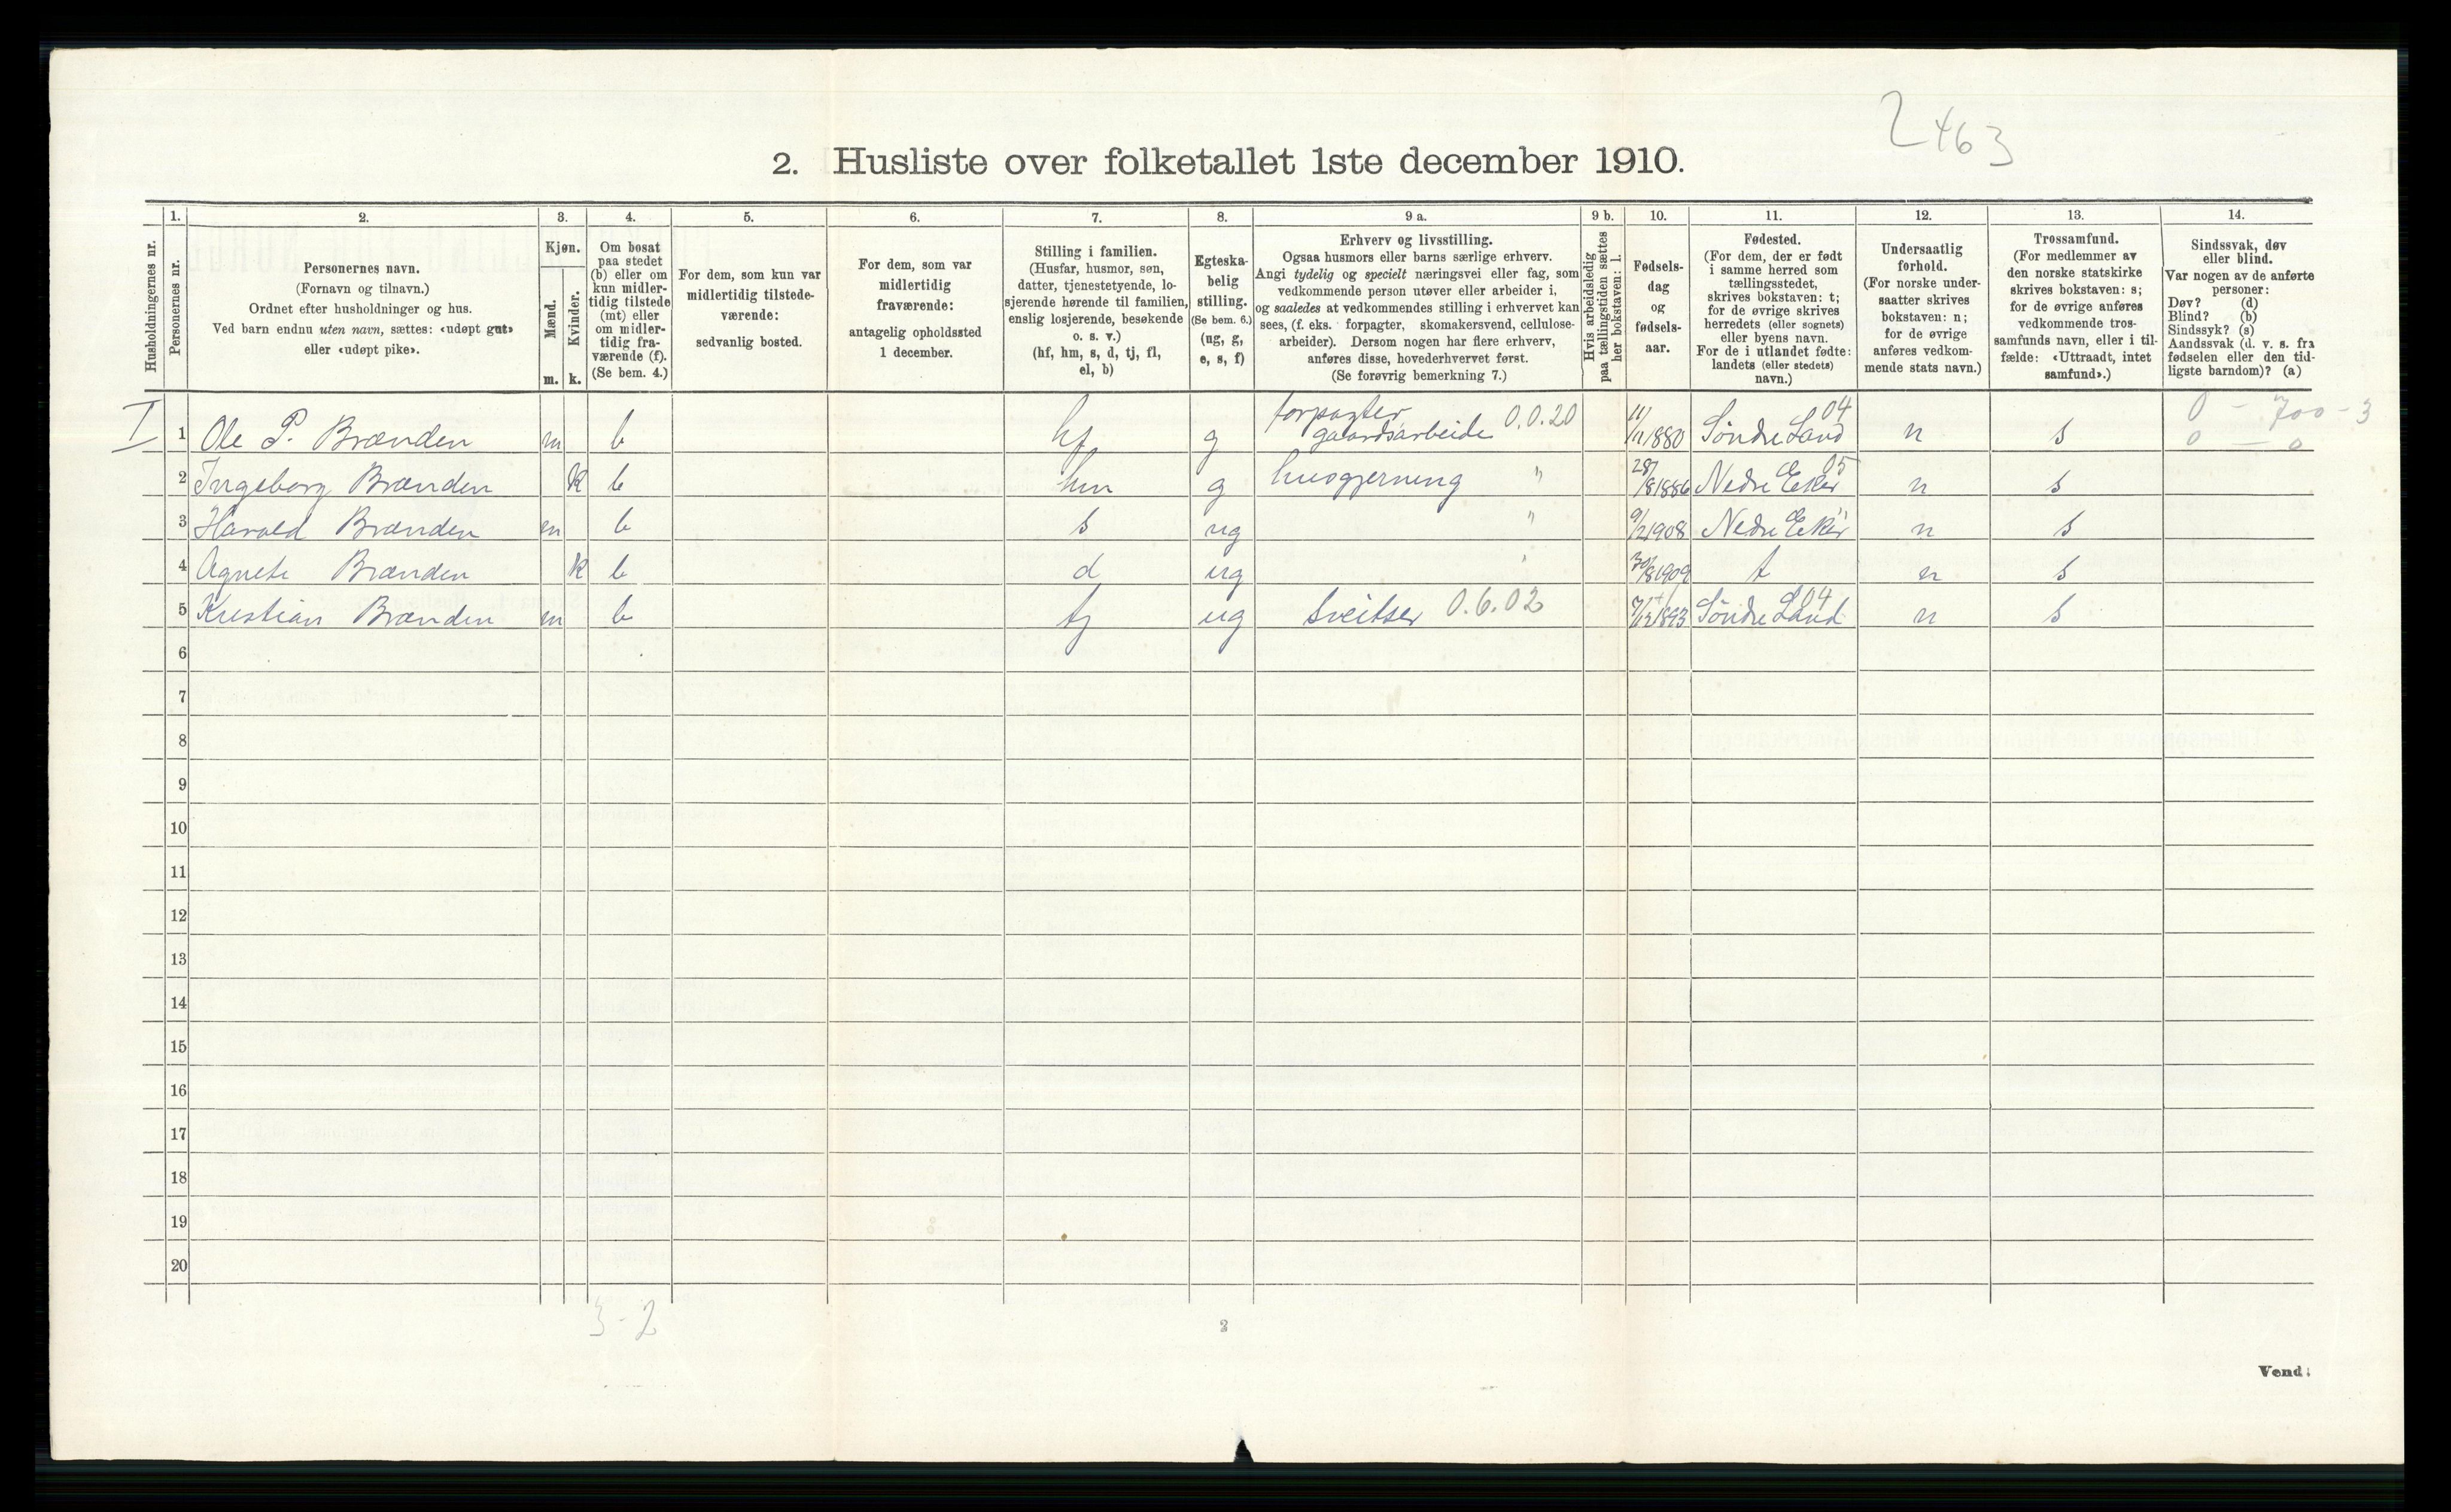 2463
2. Husliste over folketallet 1ste december 1910.
Husholdningernes nr.
1.
Personernes nr.
2.
Personernes navn.
(Fornavn og tilnavn.)
Ordnet efter husholdninger og hus.
Ved barn endnu uten navn, sættes: «udøpt gut»
eller «udøpt pike».
3.
Kjøn.
Mænd.
Kvinder.
m. k.
4.
Om bosat
paa stedet
(b) eller om
kun midler-
tidig tilstede
(mt) eller
om midler-
tidig fra-
værende (f).
(Se bem. 4.)
5.
For dem, som kun var
midlertidig tilstede-
værende:
sedvanlig bosted.
6.
For dem, som var
midlertidig
fraværende:
antagelig opholdssted
1 december.
7.
Stilling i familien.
(Husfar, husmor, søn,
datter, tjenestetyende, lo-
sjerende hørende til familien,
enslig losjerende, besøkende
o. s. v.)
(hf, hm, s, d, tj, fl,
el, b)
8.
Egteska-
belig
stilling.
(Se bem. 6.)
(ug, g,
e, s, f)
9 a.
Erhverv og livsstilling.
Ogsaa husmors eller barns særlige erhverv.
Angi tydelig og specielt næringsvei eller fag, som
vedkommende person utøver eller arbeider i,
og saaledes at vedkommendes stilling i erhvervet kan
sees, (f. eks. forpagter, skomakersvend, cellulose-
arbeider). Dersom nogen har flere erhverv,
anføres disse, hovederhvervet først.
(Se forøvrig bemerkning 7.)
9 b.
Hvis arbeidsledig
paa tællingstiden sættes
her bokstaven: l.
10.
Fødsels-
dag
og
fødsels-
aar.
11.
Fødested.
(For dem, der er født
i samme herred som
tællingsstedet,
skrives bokstaven: t;
for de øvrige skrives
herredets (eller sognets)
eller byens navn.
For de i utlandet fødte:
landets (eller stedets)
navn.)
12.
Undersaatlig
forhold.
(For norske under-
saatter skrives
bokstaven: n;
for de øvrige
anføres vedkom-
mende stats navn.)
13.
Trossamfund.
(For medlemmer av
den norske statskirke
skrives bokstaven: s;
for de øvrige anføres
vedkommende tros-
samfunds navn, eller i til-
fælde: «Uttraadt, intet
samfund».)
14.
Sindssvak, døv
eller blind.
Var nogen av de anførte
personer:
Døv? (d)
Blind? (b)
Sindssyk? (s)
Aandssvak (d. v. s. fra
fødselen eller den tid-
ligste barndom)? (a)
forpagter 0.0.20 11/ 04 0 - 700 - 3
I 1 Ole P. Brænden m b hf g gaardsarbeide /11 1880 Søndre Land n s 0 — 0
2 Ingeborg Brænden k b hm g husgjerning " 28/8 1886 Nedre Eker 05 n s
3 Harald Brænden m b s ug " 9/2 1908 Nedre Eker " n s
4 Agnete Brænden k b d ug " 30/8 1909 t n s
5 Kristian Brænden m b tj ug sveitser 0.6.02 7/12 1893 Søndre Land 04 n s
6
7
8
9
10
11
12
13
14
15
16
17
18
19
20
3-2
2
Vend!